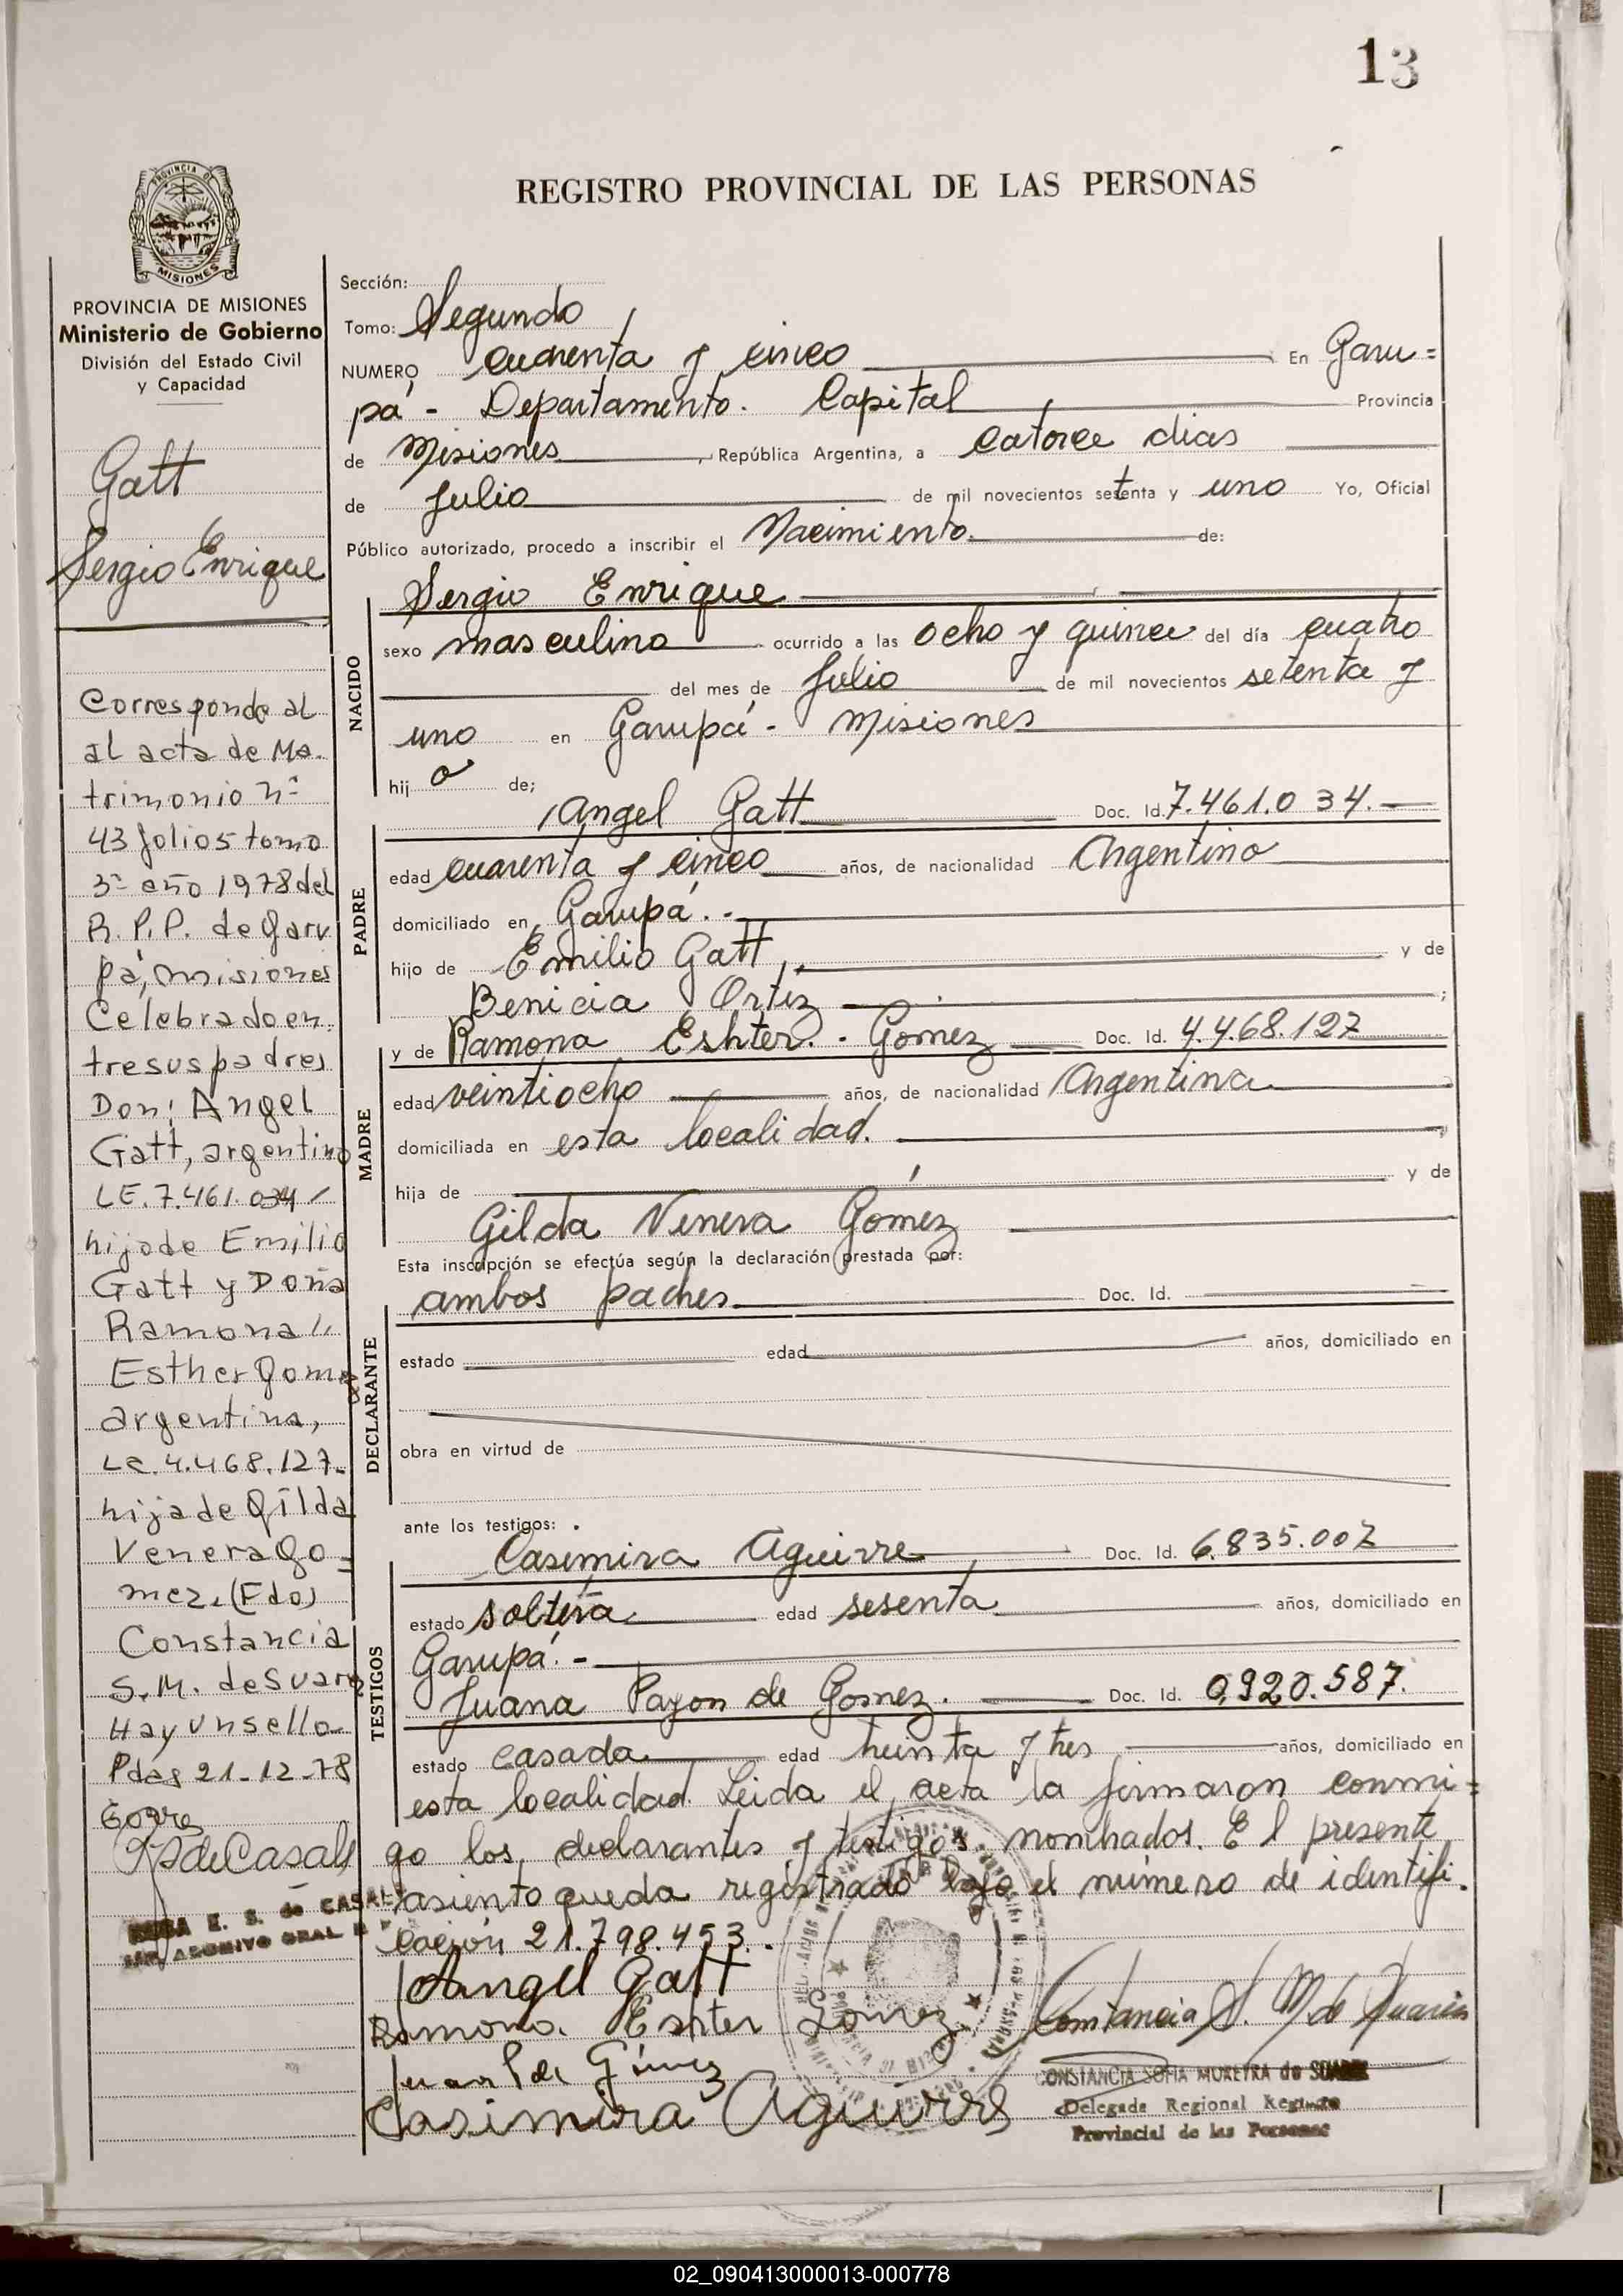 13
REGISTRO PROVINCIAL DE LAS PERSONAS
PROVINCIA DE
MISIONES
PROVINCIA DE MISIONES
Ministerio de Gobierno
División del Estado Civil
y Capacidad
Gatt
Sergio Enrique
Corresponde al
al acta de Ma.
trimonio nº
43 folio 5 tomo
3º año 1978 del
R. P. P. de Garu
pá, misiones
Celebrado en
tre sus padres
Don: Angel
Gatt, argentino
LE. 7.461.034
hijo de Emilio
Gatt y Doña
Ramona
Esther Gomez
argentina,
LC. 4.468.127.
hija de Gilda
Venera Go=
mez. (Fdo)
Constancia
S. M. de Suarez
Hay un sello
Pdas 21-12-78
de Casals
E. S. de CASALS
ARCHIVO GRAL
Sección:
Tomo: Segundo
NUMERO cuarenta y cinco En Garu=
pá - Departamento. Capital Provincia
de Misiones, República Argentina, a catorce dias
de Julio de mil novecientos setenta y uno Yo, Oficial
Público autorizado, procedo a inscribir el Nacimiento. de:
NACIDO
Sergio Enrique
sexo masculino ocurrido a las ocho y quince del día cuatro
del mes de Julio de mil novecientos setenta y
uno en Garupá - Misiones
hijo de;
PADRE
Angel Gatt Doc. Id. 7.461.034.-
edad cuarenta y cinco años, de nacionalidad Argentino
domiciliado en Garupá.-
hijo de Emilio Gatt, y de
Benicia Ortiz ;
MADRE
y de Ramona Eshter.- Gomez Doc. Id. 4.468.127
edad veintiocho años, de nacionalidad Argentina
domiciliada en esta localidad.
hija de y de
Gilda Venera Gomez
Esta inscripción se efectúa según la declaración prestada por:
DECLARANTE
ambos padres Doc. Id.
estado edad años, domiciliado en
obra en virtud de
ante los testigos:
TESTIGOS
Casimira Aguirre Doc. Id. 6.835.007
estado soltera edad sesenta años, domiciliado en
Garupá.-
Juana Payon de Gomez. Doc. Id. 0.920.587.
estado casada edad treinta y tres años, domiciliado en
esta localidad. Leida el acta la firmaron conmi=
go los declarantes y testigos nombrados. El presente
asiento queda registrado bajo el número de identifi.
cación 21.798.453.
Angel Gatt
Ramona. Eshter Gomez
Casimira Aguirre
Constancia S. M. de Suarez
CONSTANCIA SOFIA MOREYRA de SUAREZ
Delegada Regional Registro
Provincial de las Personas
02_090413000013-000778